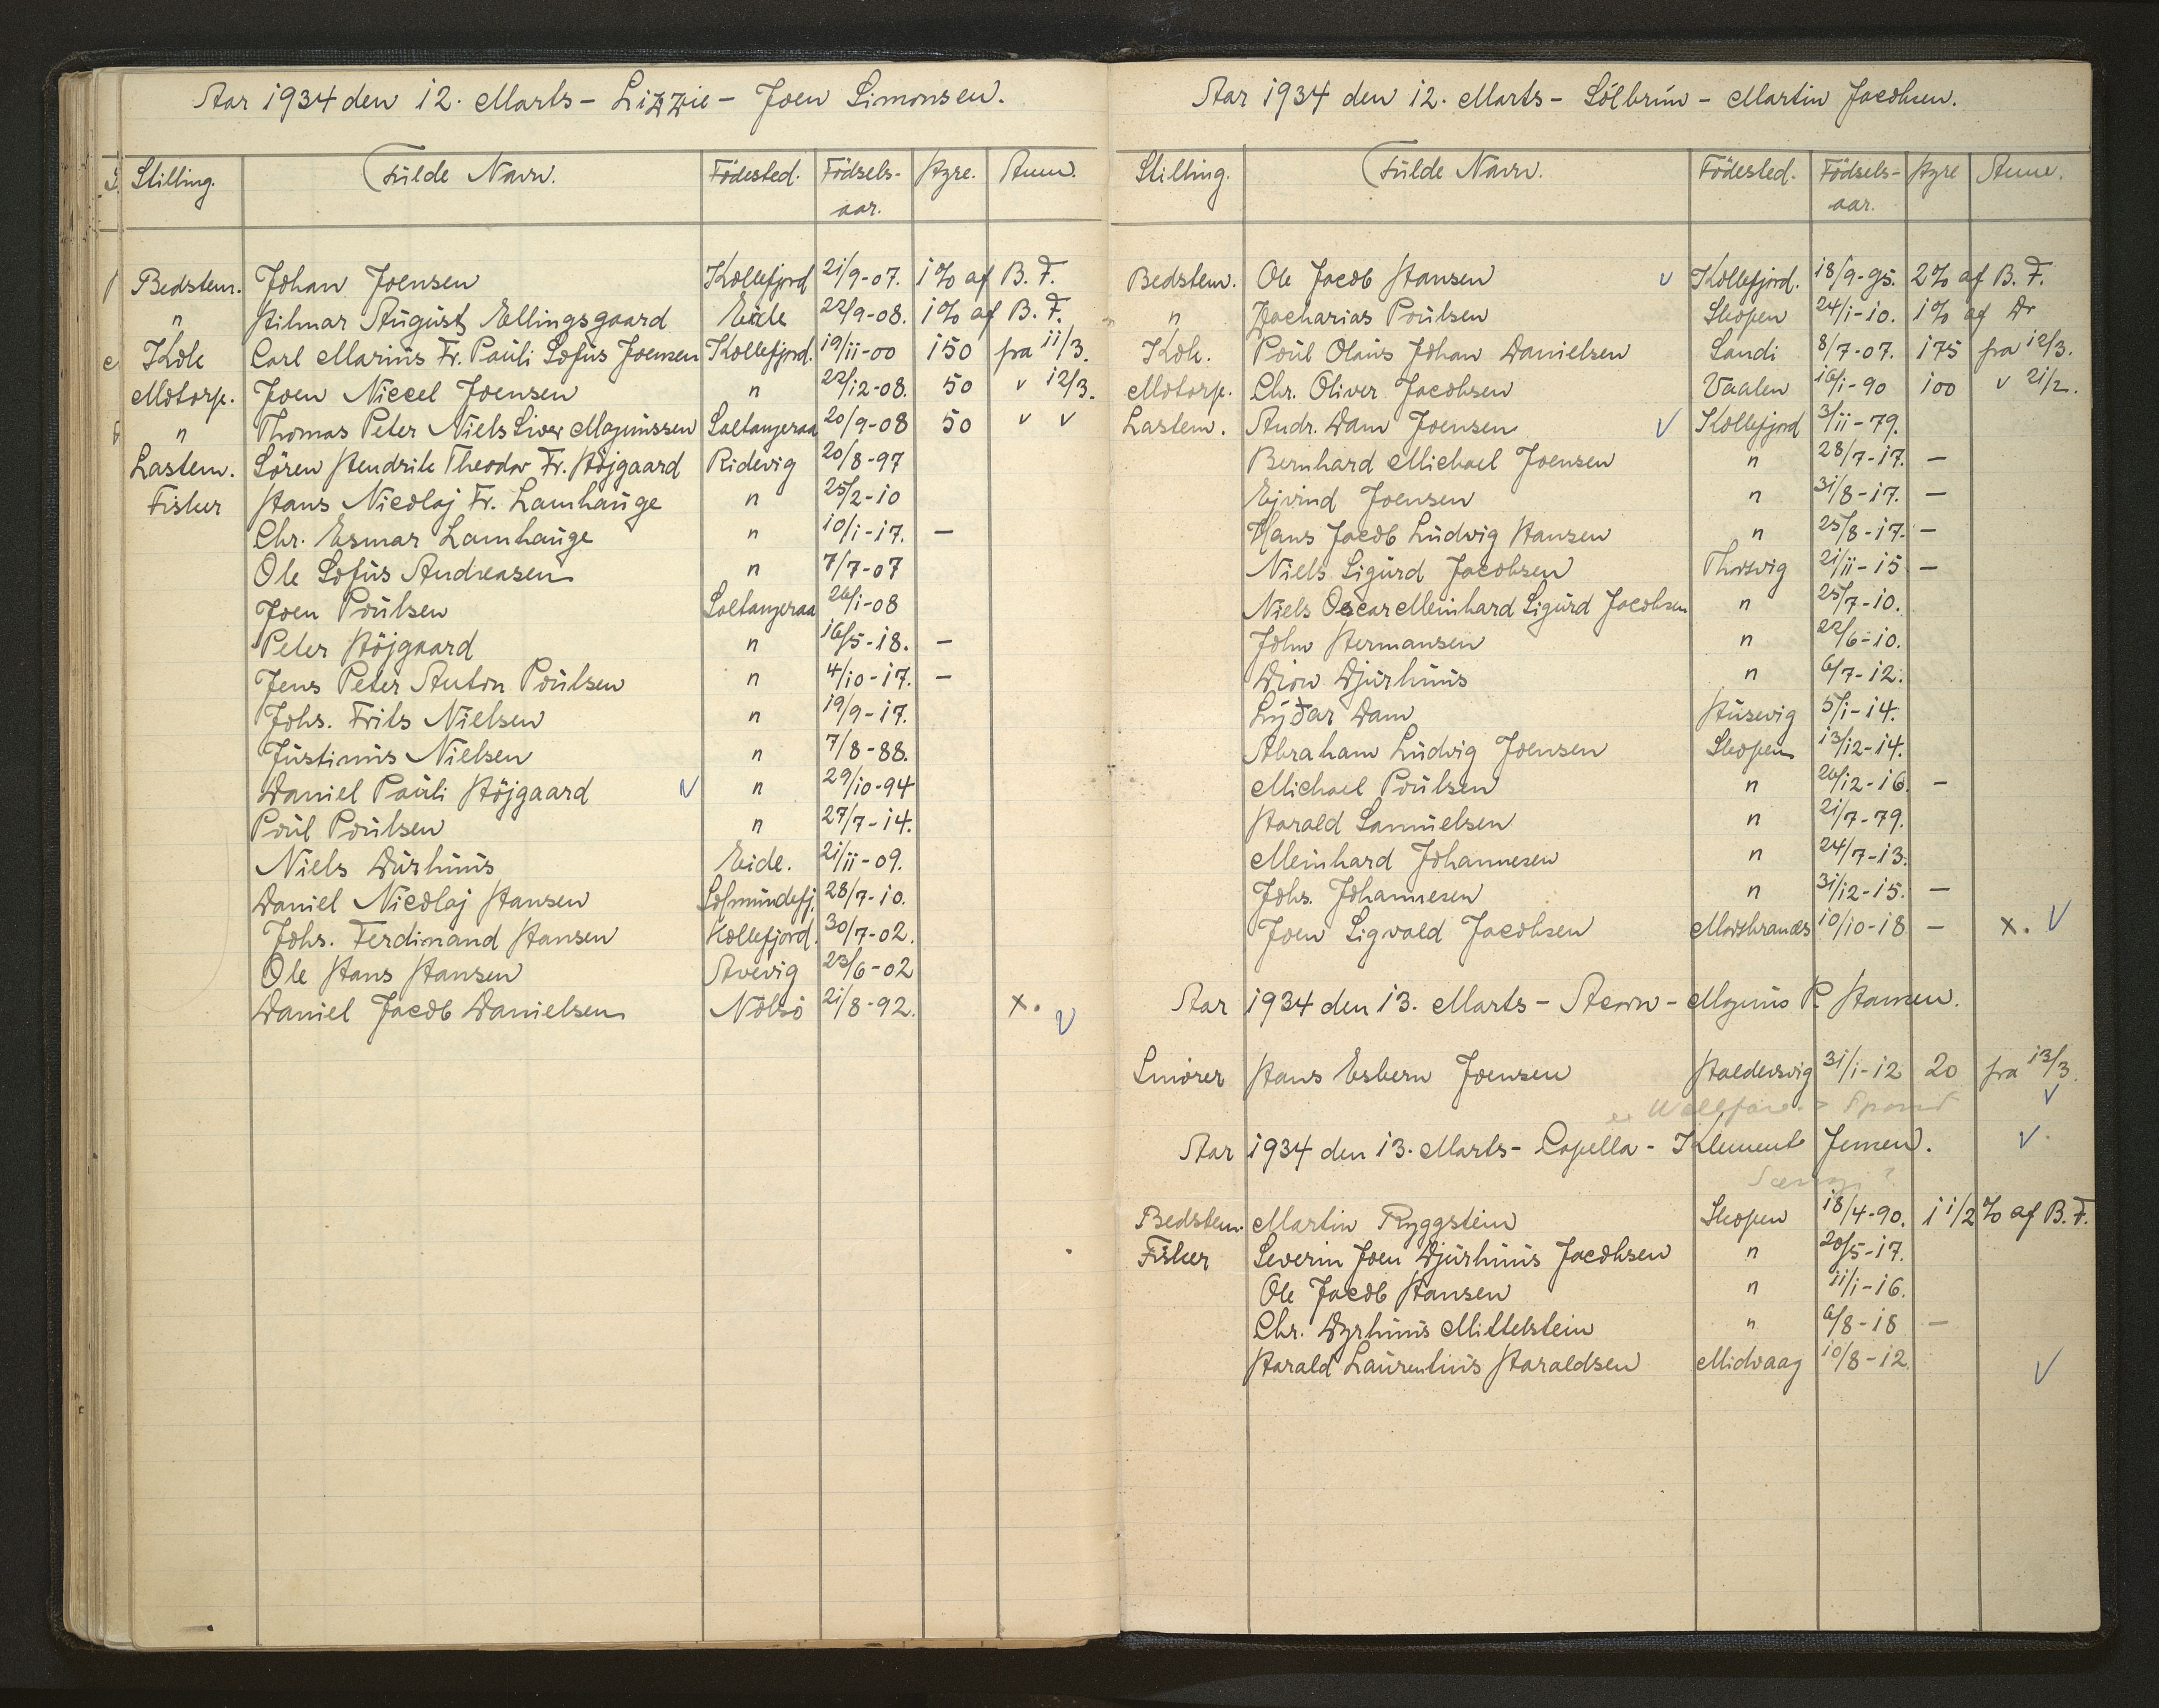 Aar 1934 den 12. Marts - Lizzie - Joen Simonsen.
Stilling. Fulde Navn. Födested. Födsels- Hyre. Anm.
aar.
Bedstem. Johan Joensen Kollefjord 21/9-07. 1% af B. F.
" Hilmar August Ellingsgaard Eide 22/9-08. 1% af B. F.
Kok Carl Marius Fr. Pauli Sofus Joensen Kollefjord. 19/11-00 150 fra 11/3.
Motorp. Joen Niccel Joensen " 22/12-08. 50 v 12/3.
" Thomas Peter Niels Siver Magnussen Saltangeraa 20/9-08 50 v v
Lastem. Sören Hendrik Theodor Fr. Höjgaard Ridevig 20/8-97
Fisker Hans Nicolaj Fr. Lamhauge " 25/2-10
Chr. Esmar Lamhauge " 10/1-17. -
Ole Sofus Andreasen " 7/7-07
Joen Poulsen Saltangeraa 26/1-08
Peter Höjgaard " 16/5-18. -
Jens Peter Anton Poulsen " 4/10-17. -
Johs. Frits Nielsen " 19/9-17.
Justinus Nielsen " 7/8-88.
Daniel Pauli Höjgaard v " 29/10-94
Poul Poulsen " 27/7-14.
Niels Durhuus Eide. 21/11-09.
Daniel Nicolaj Hansen Sosmundefj. 28/7-10.
Johs. Ferdinand Hansen Kollefjord. 30/7-02.
Ole Hans Hansen Arevig 23/6-02
Daniel Jacob Danielsen Nolsö 21/8-92. x. v
Aar 1934 den 12. Marts - Sólbrún - Martin Jacobsen.
Stilling. Fulde Navn. Födested. Födsels- Hyre Anm.
aar.
Bedstem. Ole Jacob Hansen v Kollefjord. 18/9-95. 2% af B. F.
" Zacharias Poulsen Skopen 24/1-10. 1% af Dr
Kok. Poul Olaus Johan Danielsen Sandi 8/7-07. 175 fra 12/3.
Motorp. Chr. Oliver Jacobsen Vaalen 16/1-90 100 v 21/2.
Lastem. Andr. Dam Joensen v Kollefjord 3/11-79.
Bernhard Michael Joensen " 28/7-17. -
Ejvind Joensen " 31/8-17. -
Hans Jacob Ludvig Hansen " 25/8-17. -
Niels Sigurd Jacobsen Thorsvig 21/11-15 -
Niels Oscar Meinhard Sigurd Jacobsen " 25/7-10.
John Hermansen " 22/6-10.
Dion Djurhuus " 6/7-12.
Lýðar Dam Husevig 5/1-14.
Abraham Ludvig Joensen Skopen 13/12-14.
Michael Poulsen " 26/12-16. -
Harald Samuelsen " 21/7-79.
Meinhard Johannesen " 24/7-13.
Johs. Johannesen " 31/12-15. -
Joen Sigvald Jacobsen Morskranes 10/10-18 - x. v
Aar 1934 den 13. Marts - Acorn - Magnus P. Hansen.
Smörer Hans Esbern Joensen Haldersvig 31/1-12 20 fra 13/3.
v
Aar 1934 den 13. Marts - Capella - Klement Jensen. v
Bedstem. Martin Ryggstein Skopen 18/4-90. 1 1/2% af B. F.
Fisker Severin Joen Djurhuus Jacobsen " 20/5-17.
Ole Jacob Hansen " 11/1-16.
Chr. Dyrhuus Mittelstein " 6/8-18 -
Harald Laurentius Haraldsen Midvaag 10/8-12. v